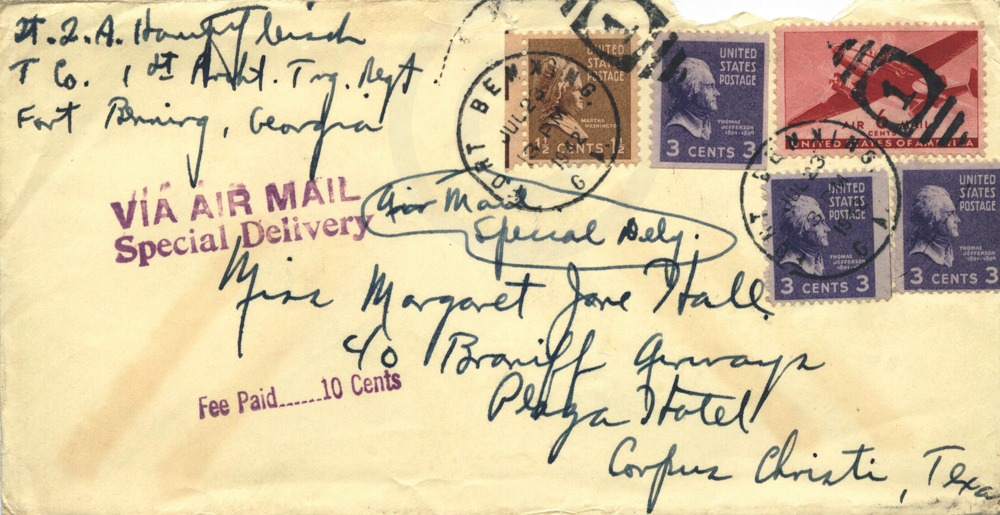 Lt. L. A. Haungfleisch
T Co. 1st Precht. Trg. Regt
Fort Benning, Georgia
VIA AIR MAIL
Special Delivery
Air Mail
Special Dely.
Miss Margaret Jane Hall
c/o Braniff Airways
Plaza Hotel
Corpus Christi, Texas
Fee Paid......10 Cents
FORT BENNING, GA
JUL 23
12 AM
UNITED
STATES
POSTAGE
MARTHA
WASHINGTON
1½ CENTS 1½
1
UNITED
STATES
POSTAGE
THOMAS
JEFFERSON
1801-1809
3 CENTS 3
1
AIR MAIL
6 CENTS 6
UNITED STATES OF AMERICA
JUL 23
UNITED
STATES
POSTAGE
THOMAS
JEFFERSON
3 CENTS 3
UNITED
STATES
POSTAGE
THOMAS
JEFFERSON
1801-1809
3 CENTS 3